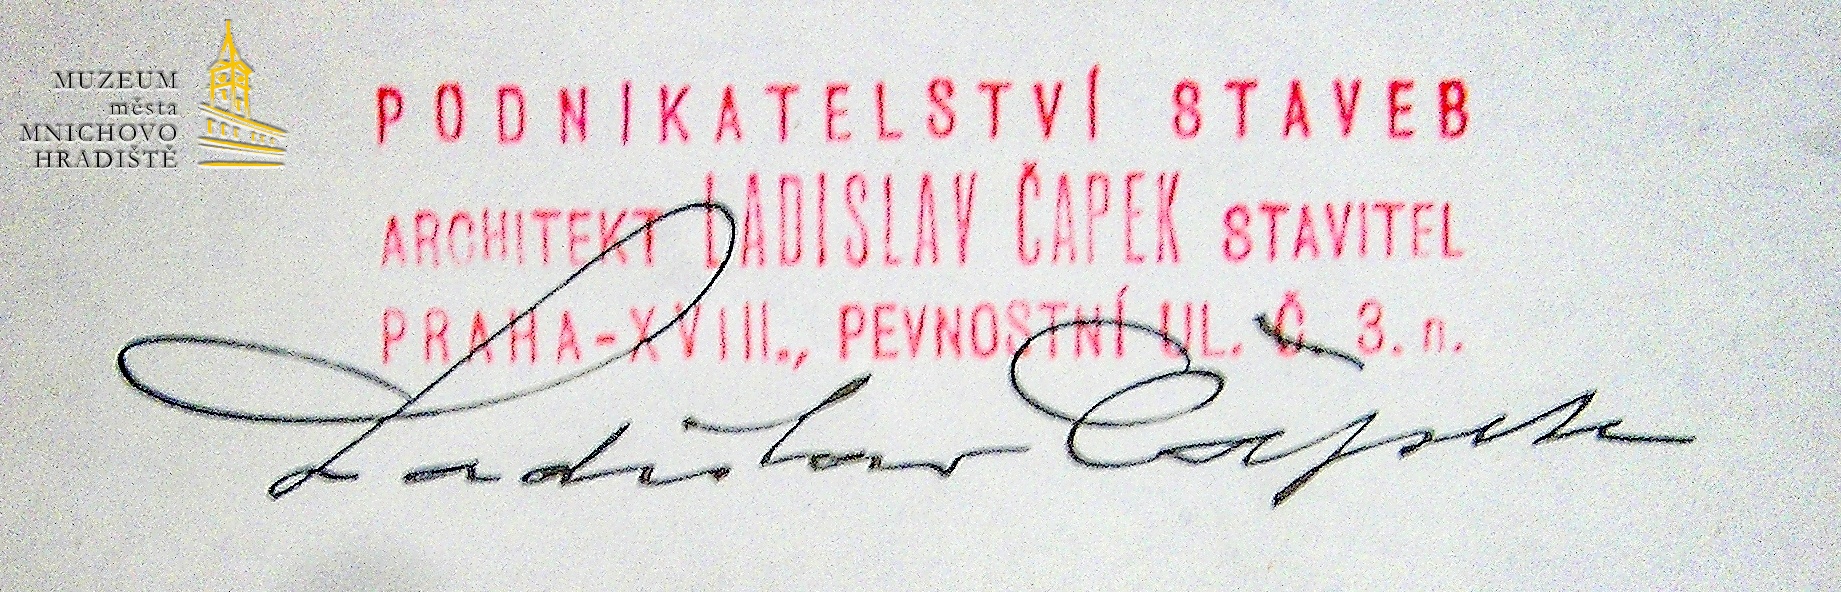 MUZEUM
města
MNICHOVO
HRADIŠTĚ
PODNIKATELSTVÍ STAVEB
ARCHITEKT LADISLAV ČAPEK STAVITEL
PRAHA-XVIII., PEVNOSTNÍ UL. Č. 3. n.
Ladislav Čapek